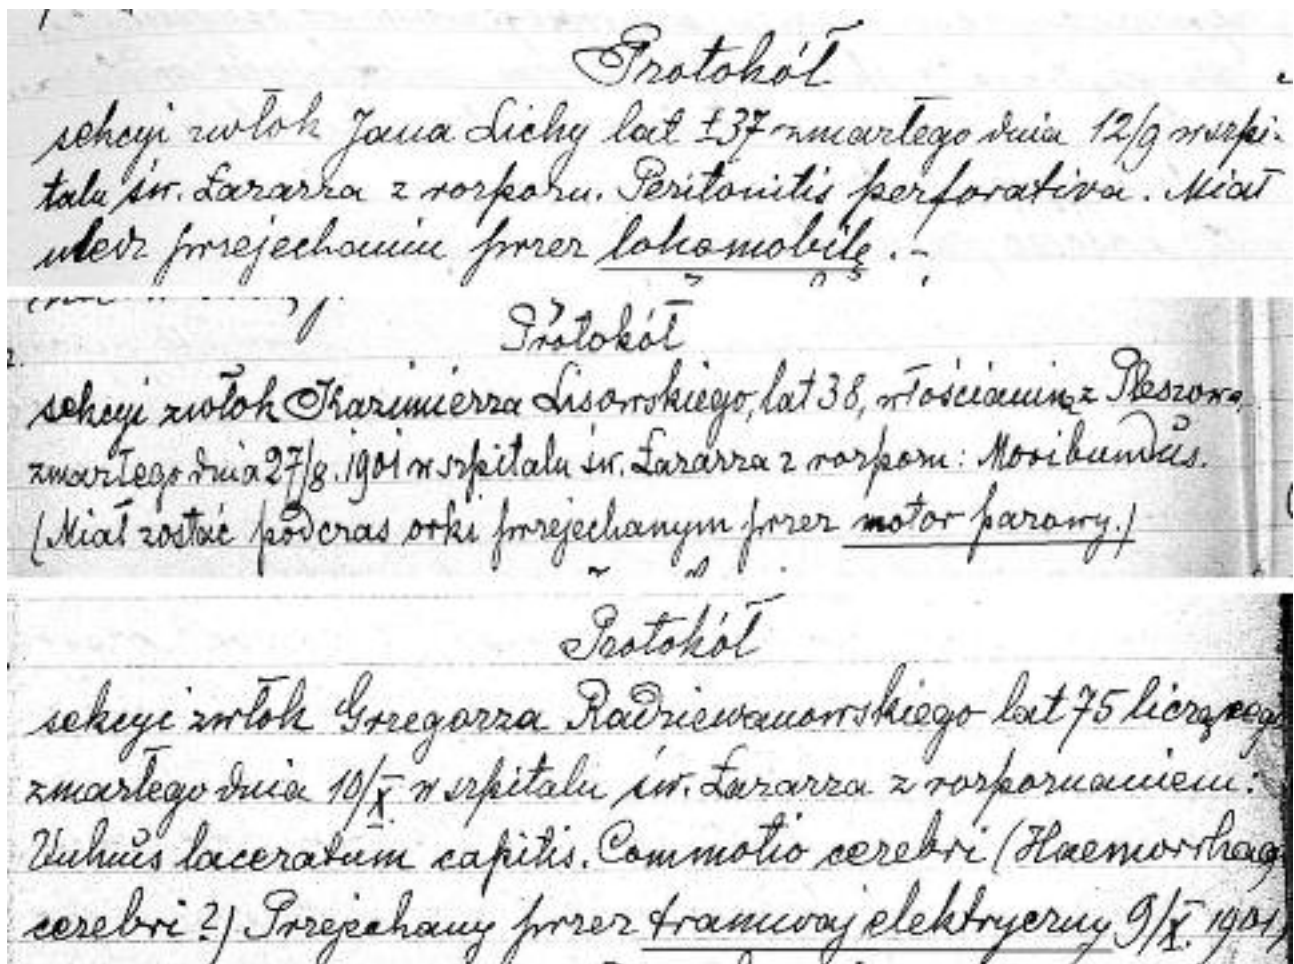 Protokół
sekcyi zwłok Jana Lichy lat ±37 zmarłego dnia 12/9 w szpi-
talu św. Łazarza z rozpozn. Peritonitis perforativa. Miał
uledz przejechaniu przez lokomobilę.-
Protokół
sekcyi zwłok Kazimierza Lisowskiego, lat 38, włościanina z Pleszowa,
zmarłego dnia 27/8. 1901 w szpitalu św. Łazarza z rozpozn: Moribundus.
(Miał zostać podczas orki przejechanym przez motor parowy.)
Protokół
sekcyi zwłok Grzegorza Radziewanowskiego lat 75 liczącego
zmarłego dnia 10/X. w szpitalu św. Łazarza z rozpoznaniem:
Vulnus laceratum capitis. Commotio cerebri (Haemorrhag
cerebri?) Przejechany przez tramwaj elektryczny 9/X. 1901)